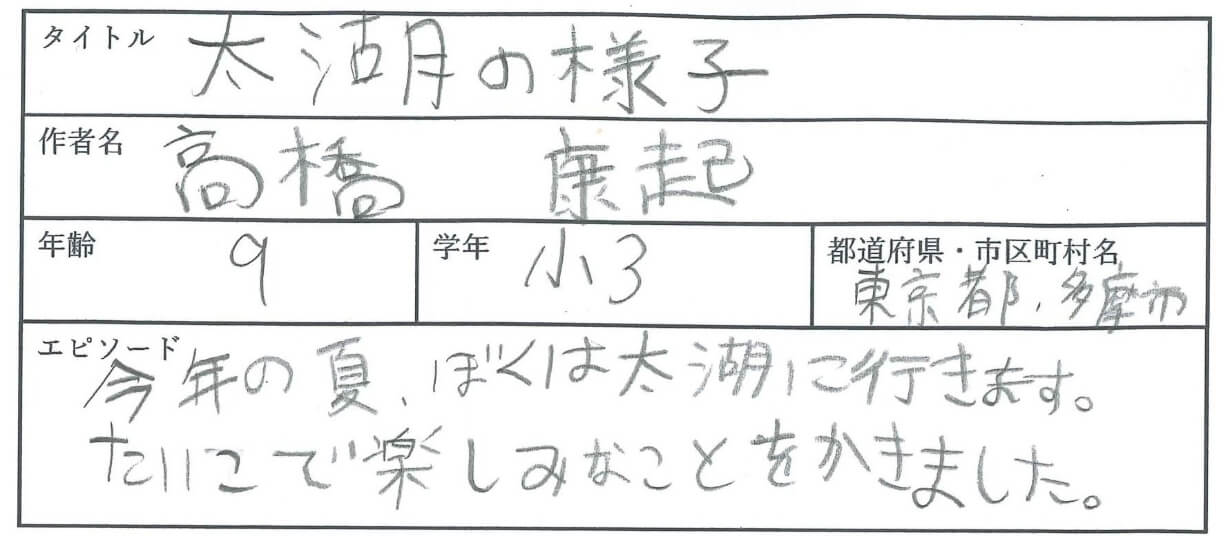 タイトル 太湖の様子
作者名 高橋 康起
年齢 9 学年 小3 都道府県・市区町村名 東京都、多摩市
エピソード
今年の夏、ぼくは太湖に行きます。
たいこで楽しみなことをかきました。